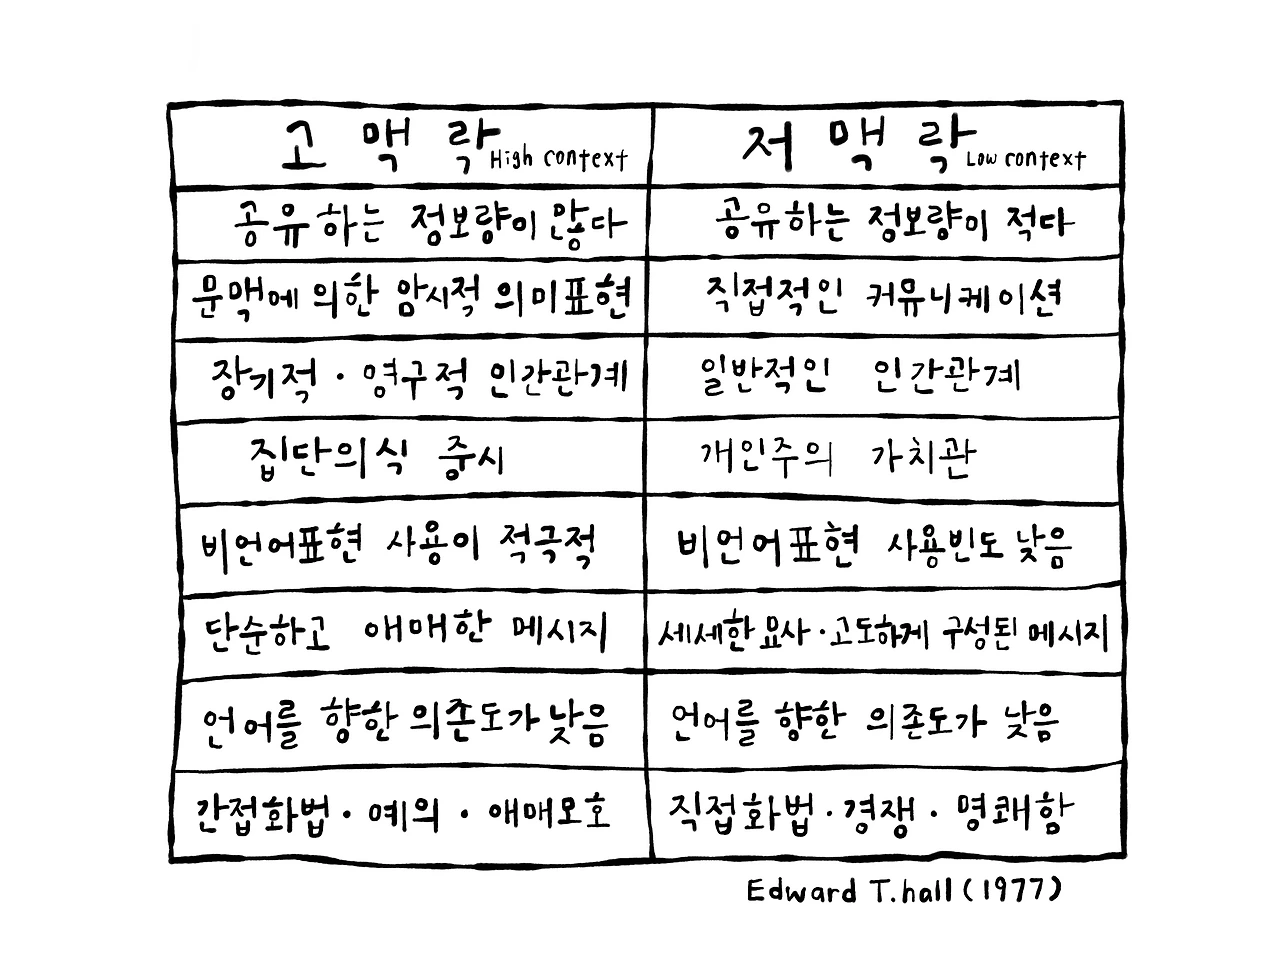 고맥락 High context 저맥락 Low context
공유하는 정보량이 많다 공유하는 정보량이 적다
문맥에 의한 암시적 의미표현 직접적인 커뮤니케이션
장기적·영구적 인간관계 일반적인 인간관계
집단의식 중시 개인주의 가치관
비언어표현 사용이 적극적 비언어표현 사용빈도 낮음
단순하고 애매한 메시지 세세한 묘사·고도하게 구성된 메시지
언어를 향한 의존도가 낮음 언어를 향한 의존도가 낮음
간접화법·예의·애매모호 직접화법·경쟁·명쾌함
Edward T.hall (1977)